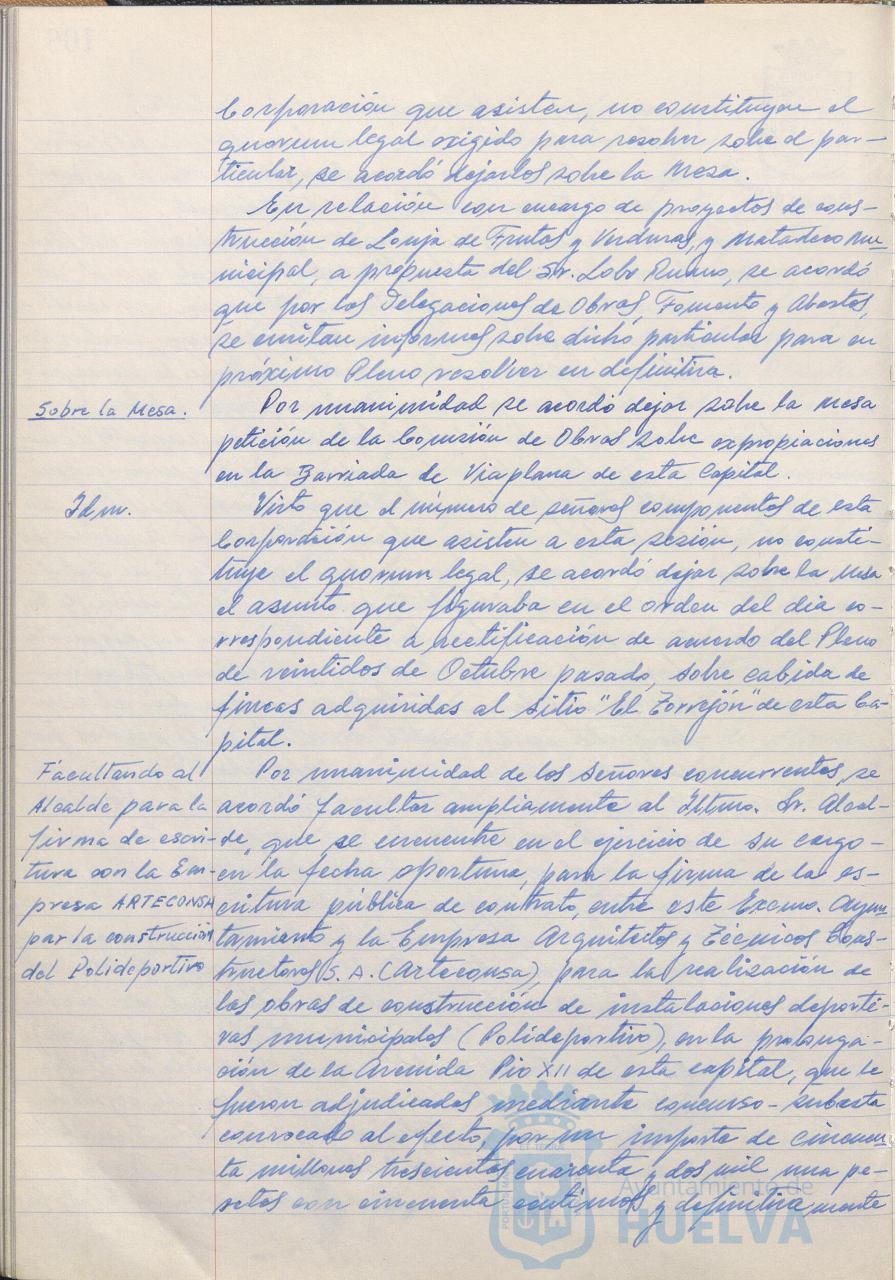 Corporación que asisten, no constituyen el
quorum legal exigido para resolver sobre el par-
ticular, se acordó dejarlos sobre la Mesa.
En relación con encargo de proyectos de cons-
trucción de Lonja de Frutas y Verduras, y Matadero Mu-
nicipal, a propuesta del Sr. Lobo Ruano, se acordó
que por las Delegaciones de Obras, Fomento y Abastos,
se emitan informes sobre dicho particular para en
próximo Pleno resolver en definitiva.
Sobre la Mesa.
Por unanimidad se acordó dejar sobre la mesa
petición de la Comisión de Obras sobre expropiaciones
en la Barriada de Viaplana de esta Capital.
Idm.
Visto que el número de señores componentes de esta
Corporación que asisten a esta sesión, no consti-
tuye el quorum legal, se acordó dejar sobre la Mesa
el asunto que figuraba en el orden del dia co-
rrespondiente a rectificación de acuerdo del Pleno
de veintidos de Octubre pasado, sobre cabida de
fincas adquiridas al sitio "El Torrejón" de esta Ca-
pital.
Facultando al
Alcalde para la
firma de escri-
tura con la Em-
presa ARTECONSA
par la construcción
del Polideportivo
Por unanimidad de los señores concurrentes, se
acordó facultar ampliamente al Iltmo. Sr. Alcal-
de, que se encuentre en el ejercicio de su cargo
en la fecha oportuna, para la firma de la es-
critura pública de contrato, entre este Excmo. Ayun
tamiento y la Empresa Arquitectos y Técnicos Cons-
tructores S. A. (Arteconsa), para la realización de
las obras de construcción de instalaciones deporti-
vas municipales (Polideportivo), en la prolonga-
ción de la Avenida Pio XII de esta capital, que le
fueron adjudicadas mediante concurso-subasta
convocado al efecto, por un importe de cincuen
ta millones trescientas cuarenta y dos mil una pe-
setas con cincuenta centimos y definitivamente
Ayuntamiento de
HUELVA